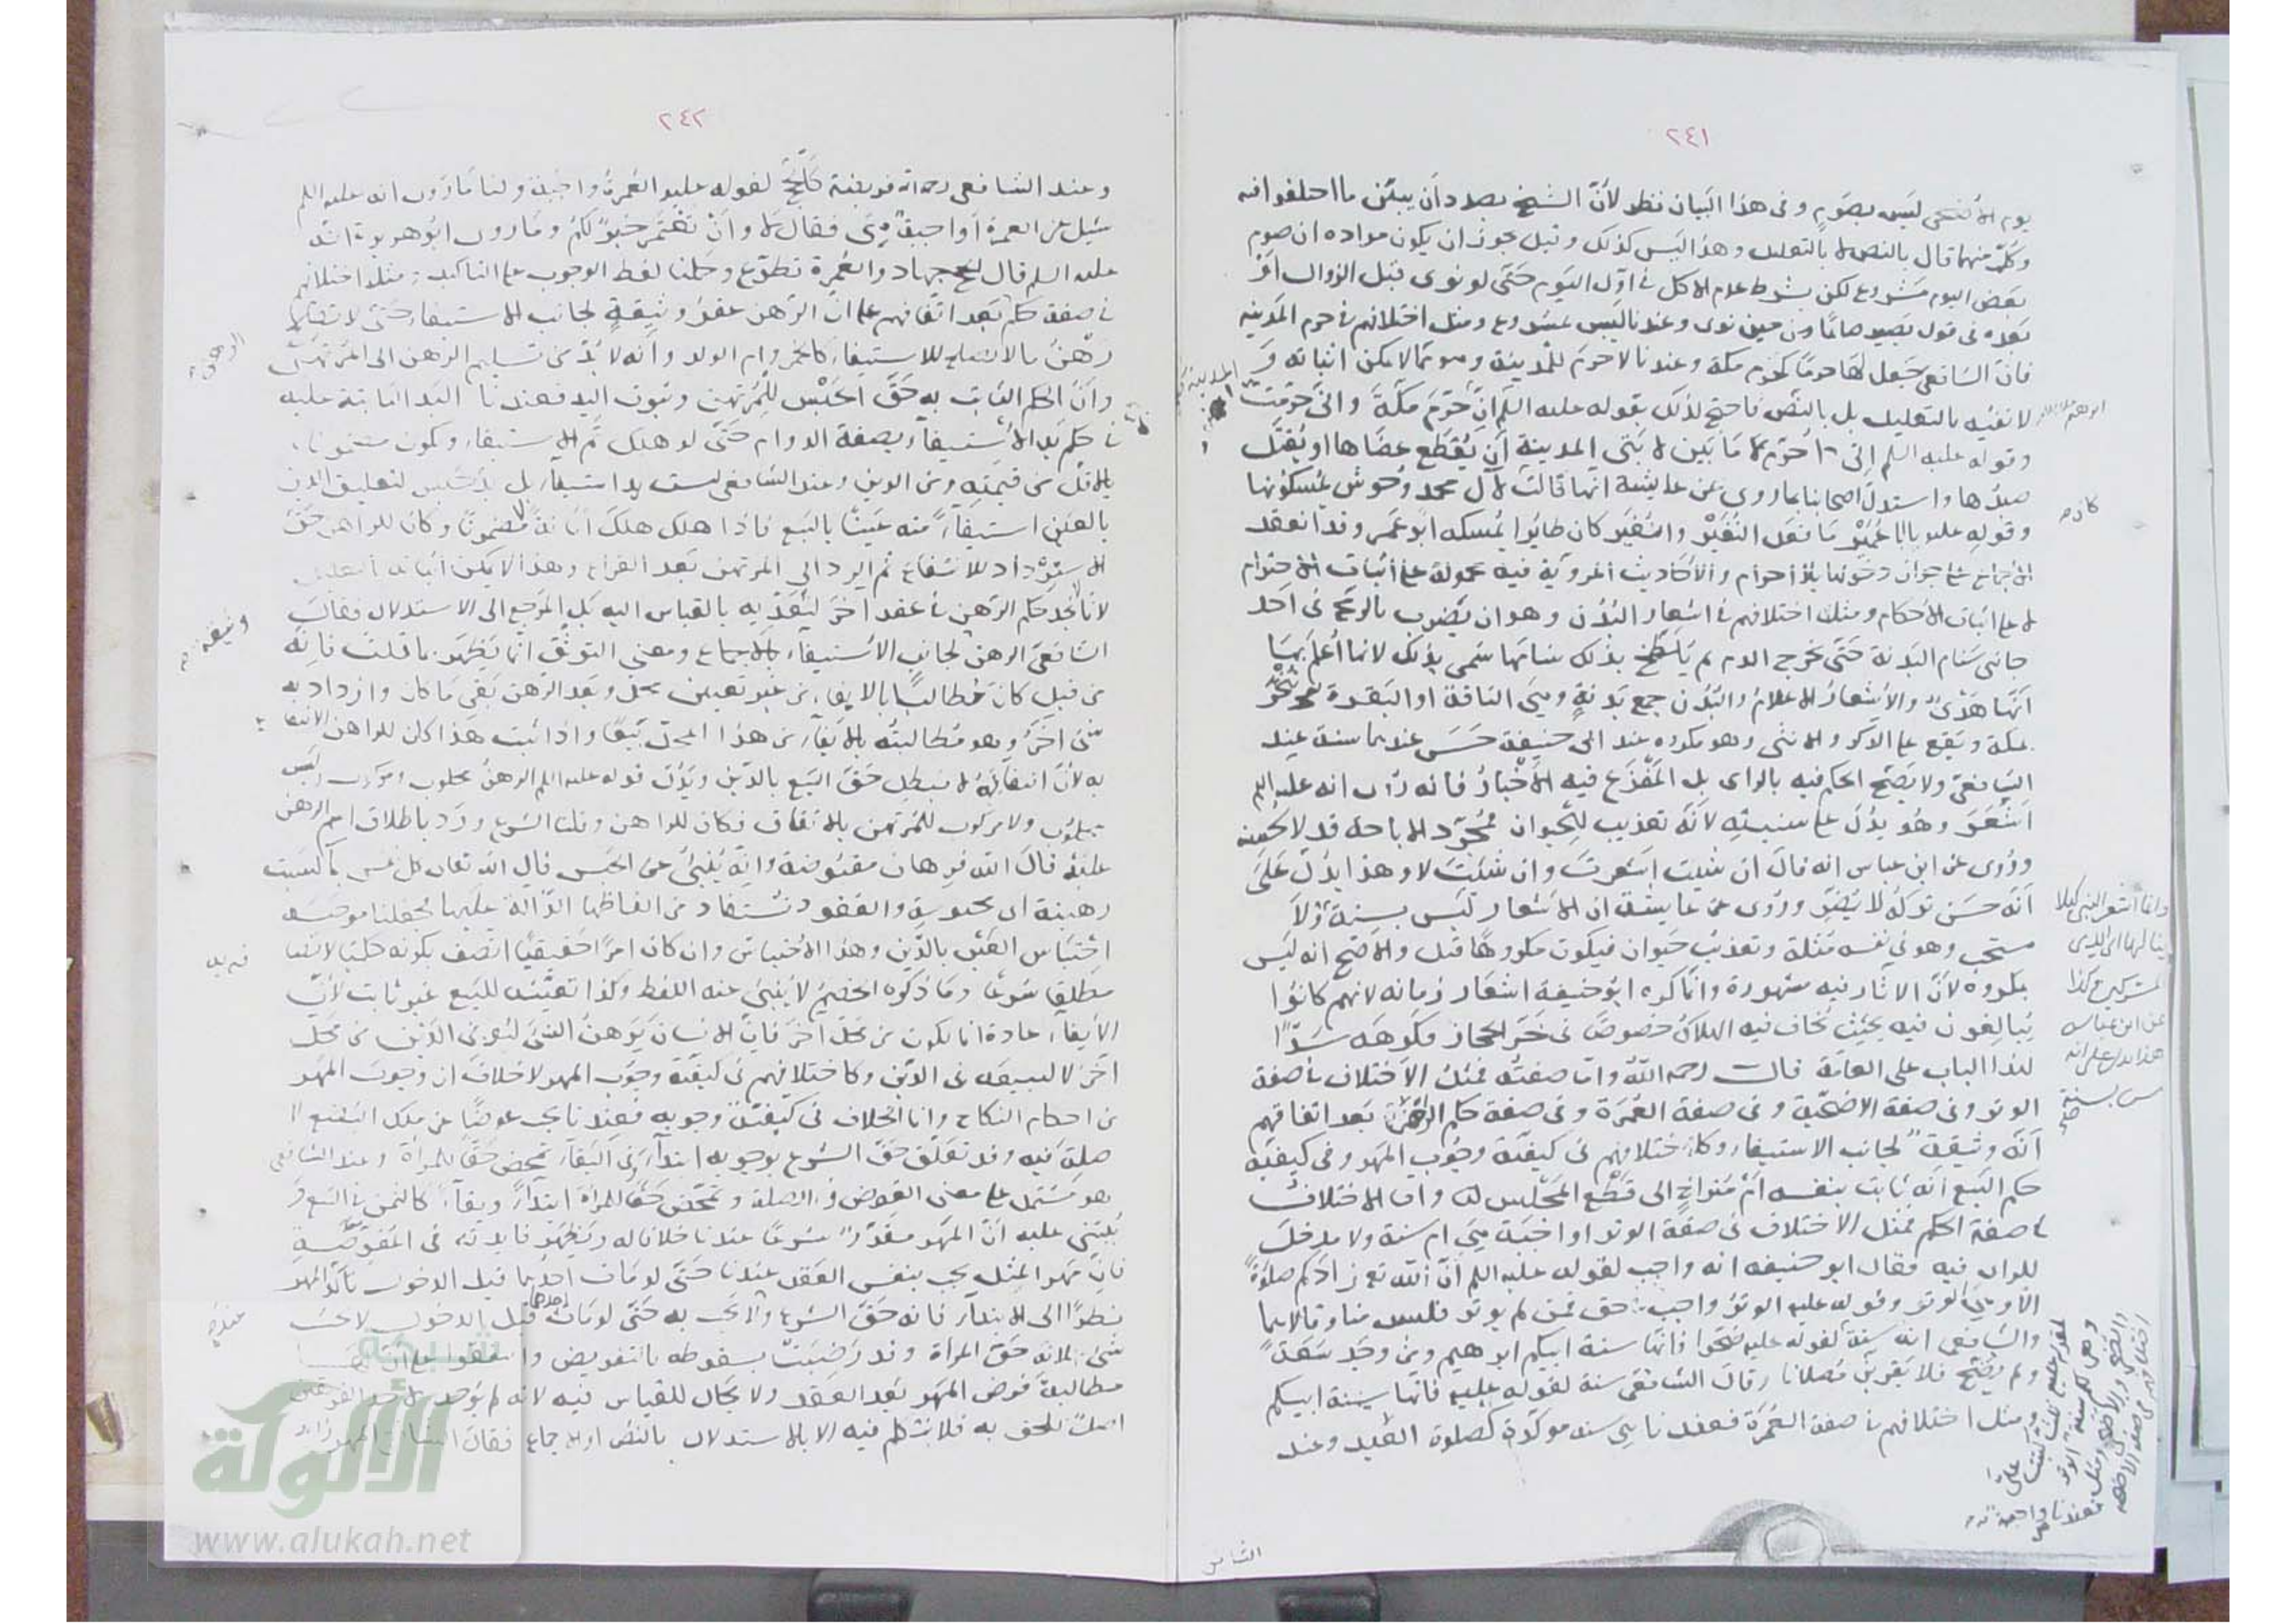 ٢٤١
يوم الأضحى ليس بصوم وفى هذا البيان نظر لأن الشيخ بصدد أن يبين ما اختلفوا فيه
وكل منهما قال بالنص لا بالتعليل وهذا ليس كذلك وقيل يجوز ان يكون مراده ان صوم
بعض اليوم مشروع لكن بشرط عدم الاكل في أول اليوم حتى لو نوى قبل الزوال أو
بعده فى قول يصير صائما من حين نوى وعندنا ليس بمشروع ومثل اختلافهم في حرم المدينه
فان الشافعى جعل لها حرما كحرم مكة وعندنا لا حرم للمدينة وهو مما لا يمكن اثباته و
لا نفيه بالتعليل بل بالنص فاحتج لذلك بقوله عليه السلم ان حرم مكة وانى حرمت
وقوله عليه السلم انى احرم ما بين لابتى المدينة أن يقطع عضاها او يقتل
صيدها واستدل اصحابنا بما روي عن عايشة انها قالت لآل محمد وحوش يمسكونها
وقوله عليه يا ابا عمير ما فعل النغير والنغير كان طايرا يمسكه ابو عمير وقد انعقد
الاجماع على جواز دخولها بلا احرام والأحاديث المروية فيه محمولة على أثبات الاحترام
لا على اثبات الأحكام ومثل اختلافهم في اشعار البدن وهو ان يضرب بالرمح فى احد
جانبى سنام البدنة حتى يخرج الدم ثم يلطخ بذلك سنامها سمى بذلك لانها أعلم بها
أنها هدى والاشعار الاعلام والبدن جمع بدنة وهى الناقة او البقرة تنحر
بمكة ويقع على الذكر والانثى وهو مكروه عند ابى حنيفة حسن عندهما سنة عند
الشافعى ولا يصح الحكم فيه بالراى بل المفزع فيه الأخبار فانه روى انه عليه السلم
أشعر وهو يدل على سنيته لأنه تعذيب للحيوان
وروى عن ابن عباس انه قال ان شيت اشعرت وان شئت لا وهذا يدل على
أنه حسن تركه لا يضر وروى عن عايشة ان الاشعار ليس بسنة ولا
مستحب وهو فى نفسه مثلة وتعذيب حيوان فيكون مكروها قيل والاصح انه ليس
بمكروه لأن الآثار فيه مشهورة وانما كره ابو حنيفة اشعار زمانه لانهم كانوا
يبالغون فيه بحيث يخاف فيه الهلاك خصوصا فى حر الحجاز فكرهه سدا
لهذا الباب على العامة قال رحمه الله واما صفته فمثل الاختلاف في صفة
الوتر وفى صفة الاضحية وفى صفة العمرة وفى صفة حكم الرهن بعد اتفاقهم
أنه وثيقة لجانب الاستيفاء وكاختلافهم فى كيفية وجوب المهر وفى كيفية
حكم البيع أنه ثابت بنفسه أم متراخ الى قطع المجلس واما الاختلاف
في صفة الحكم فمثل الاختلاف فى صفة الوتر اواجبة هي ام سنة ولا مدخل
للراى فيه فقال ابو حنيفه انه واجب لقوله عليه السلم أن الله تع زادكم صلوة
الا وهي الوتر وقوله عليه الوتر واجب حق فمن لم يوتر فليس منا وقالا هما
والشافعى انه سنة لقوله عليه ضحوا فانها سنة ابيكم ابرهيم ومن وجد سعة
ولم يضح فلا يقربن مصلانا وقال الشافعى سنة لقوله عليه فانها سنة ابيكم
ومثل اختلافهم في صفة العمرة فعندنا هي سنه موكدة كصلوة العيد وعند
وانما اشعر النبى كيلا
ينالها ايدى
المشركين كذا
عن ابن عباس
هذا يدل على انه
ليس بسنة
٢٤٢
وعند الشافعى رحمه الله فريضة كالحج لقوله عليه العمرة واجبة ولنا ما روى انه عليه السلم
سئل عن العمرة أواجبة هى فقال لا وأن تعتمر خير لكم وما روى ابو هريرة انه
عليه السلم قال الحج جهاد والعمرة تطوع وحملنا لفظ الوجوب على التاكيد ومثل اختلافهم
في صفة حكم بعد اتفاقهم على ان الرهن عقد وثيقة لجانب الاستيفاء حتى لا
رهن ما لا يصلح للاستيفاء كالخمر وام الولد وأنه لا بد من تسليم الرهن الى المرتهن
وأن الحكم الثابت به حق الحبس للمرتهن وثبوت اليد فعندنا اليد الثابتة عليه
في حكم يد الاستيفاء بصفة الدوام حتى لو هلك تم الاستيفاء وكون مضمونا
بالاقل من قيمته ومن الدين وعند الشافعى ليست يد استيفاء بل
بالعين استيفاء منه عينا بالبيع فاذا هلك هلك أمانة لا مضمونا وكان للراهن حق
الاسترداد للانتفاع ثم الرد الى المرتهن بعد الفراغ وهذا لا يمكن أثباته
لانا لا نجد حكم الرهن في عقد آخر لنعديه بالقياس اليه بل المرجع الى الاستدلال فقال
الشافعى الرهن لجانب الاستيفاء بالاجماع ومعنى التوثق انما يظهر بما قلت فانه
من قبل كان مطالبا بالايفاء من غير تعيين محل وبعد الرهن بقى ما كان وازداد به
شىء آخر وهو مطالبته بالايفاء من هذا المحل بيعا واذا ثبت هذا كان للراهن الانتفاع
به لأن انتفاعه لا يبطل حق البيع بالدين ويدل قوله عليه السلم الرهن محلوب ومركوب وليس
بمحلوب ولا مركوب للمرتهن بالاتفاق فكان للراهن وقلنا الشرع ورد باطلاق اسم الرهن
عليه قال الله فرهان مقبوضة وانه ينبئ عن الحبس قال الله تعالى كل نفس بما كسبت
رهينة اى محبوسة والعقود تستفاد من الفاظها الدالة عليها فجعلنا موجبه
احتباس العين بالدين وهذا الاحتباس وان كان امرا حقيقيا اتصف بكونه حكما
مطلقا شرعا وما ذكره الخصم لا ينبئ عنه اللفظ وكذا تعينه للبيع غير ثابت لأن
الايفاء عادة انما يكون من محل آخر فان الانسان يرهن الشئ ليوفى الدين من محل
آخر لا ليبيعه فى الدين وكاختلافهم فى كيفية وجوب المهر لا خلاف ان وجوب المهر
من احكام النكاح وانما الخلاف فى كيفية وجوبه فعندنا يجب عوضا عن ملك البضع
صلة فيه وقد تعلق حق الشرع بوجوبه ابتداء وفى البقاء تمحض حقا للمرأة وعند الشافعى
هو مشتمل على معنى العوض والصلة وتمحض حقا للمرأة ابتداء وبقاء كالثمن في البيع و
يبتنى عليه أن المهر مقدر شرعا عندنا خلافا له وتظهر فايدته فى المفوضة
فان مهر المثل يجب بنفس العقد عندنا حتى لو مات احدهما قبل الدخول تأكد المهر
نظرا الى الابتداء فانه حق الشرع ولا يجب به حتى لو مات احدهما قبل الدخول لا يجب
شئ لانه حق المرأة وقد رضيت بسقوطه بالتفويض واتفقوا على ان لها
مطالبة فرض المهر بعد العقد ولا مجال للقياس فيه لانه لم يوجد
اصل نلحق به فلا نتكلم فيه الا بالاستدلال بالنص او الاجماع فقال
شبكة
الألوكة
www.alukah.net